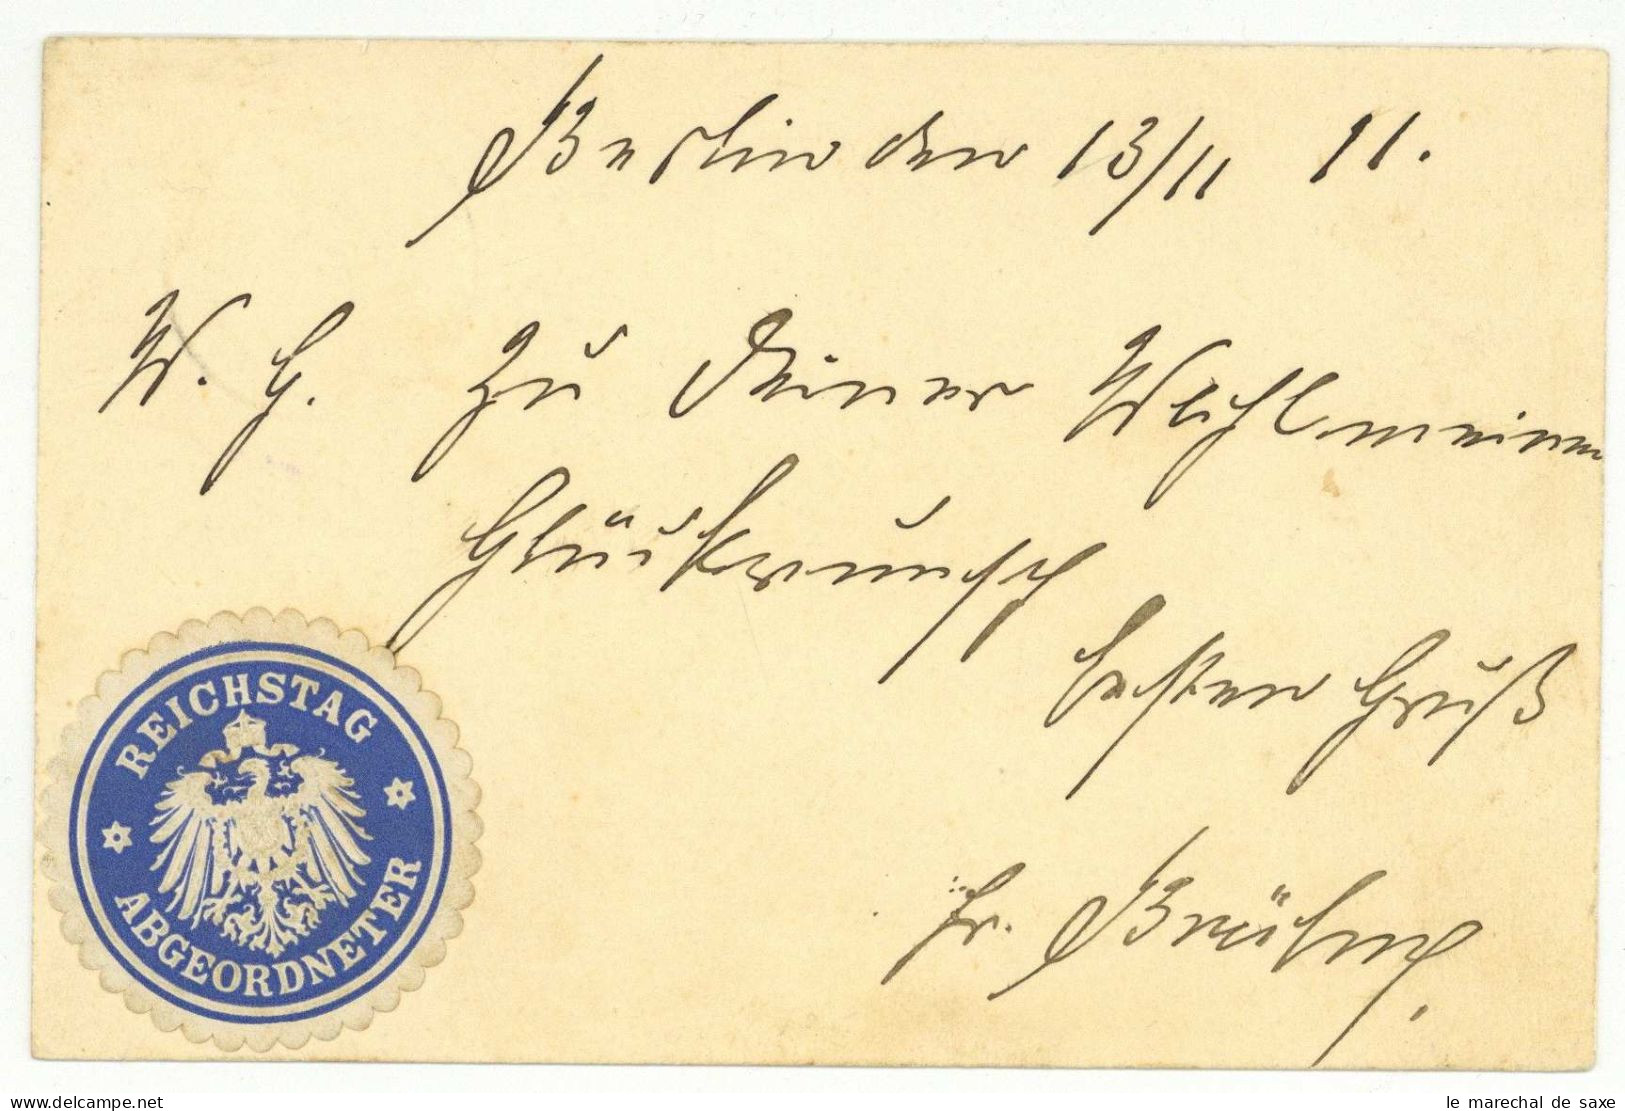 Berlin den 13/11 11.
W. H. Zu Deiner Wahl meinen
Glückwunsch
besten Gruß
Fr. Brühne
REICHSTAG
ABGEORDNETER
le marechal de saxe